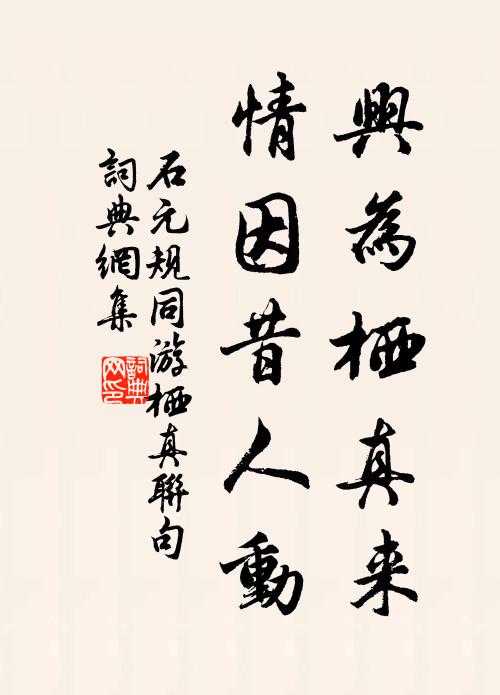 興為栖真来
情因昔人動
石元規同游栖真聯句
詞典網集
詞典網印